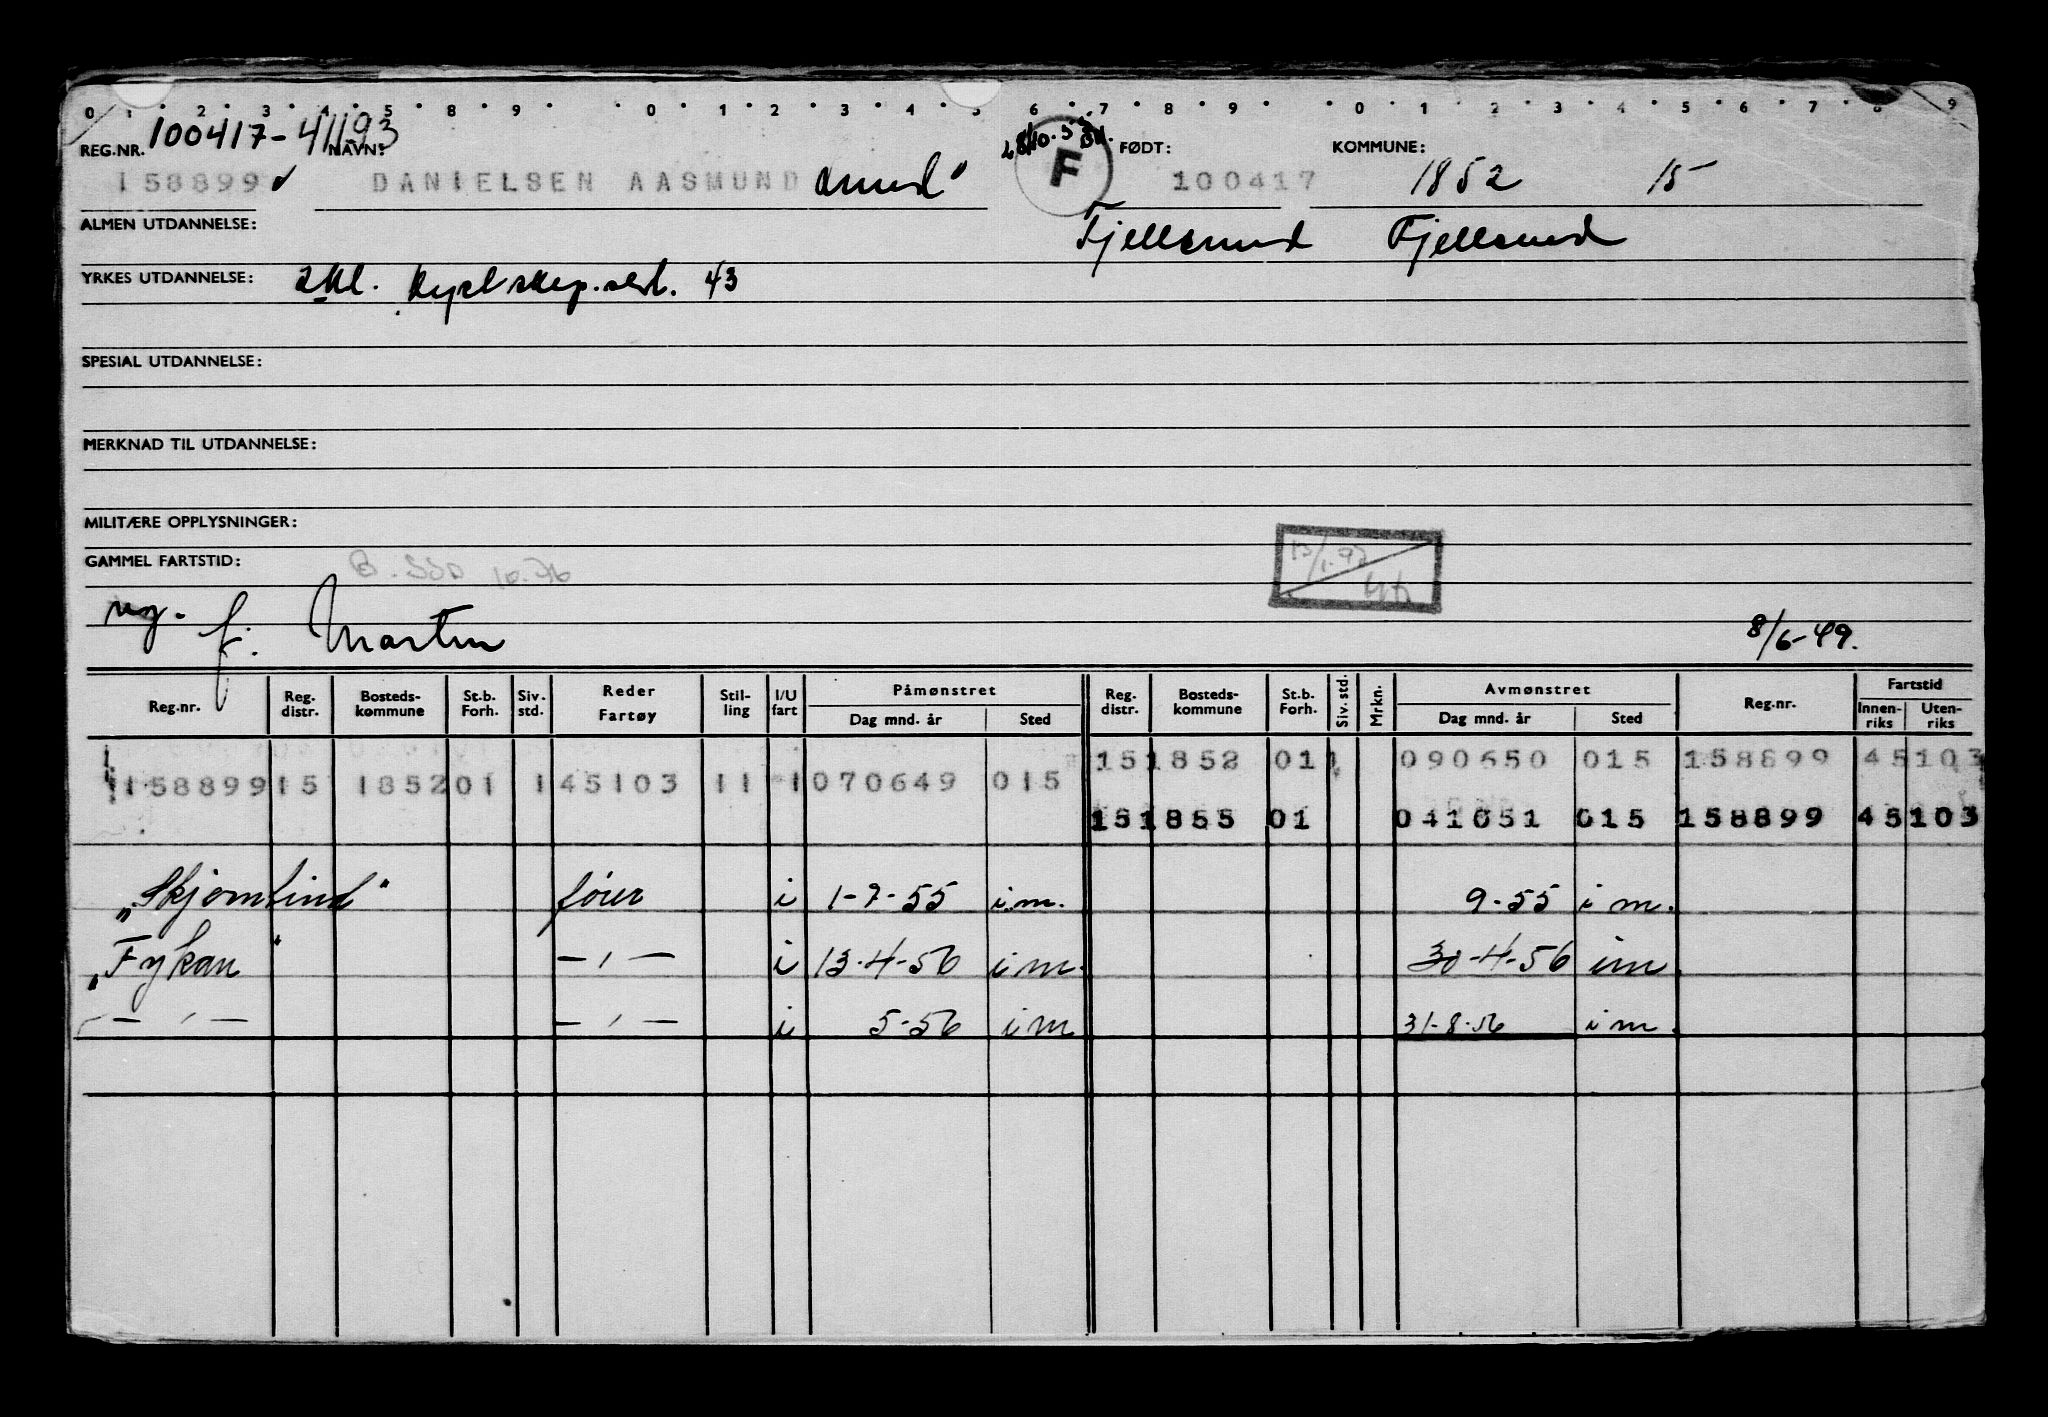 0 1 2 3 4 5 8 9 0 1 2 3 4 5 6 7 8 9 0 1 2 3 4 5 6 7 8 9
REG.NR. 100417-41193 NAVN: FØDT: KOMMUNE:
158899 DANIELSEN AASMUND F 100417 1852 15
ALMEN UTDANNELSE: Fjellsund Fjellsund
YRKES UTDANNELSE: 2 kl. kystskip.sert. 43
SPESIAL UTDANNELSE:
MERKNAD TIL UTDANNELSE:
MILITÆRE OPPLYSNINGER:
GAMMEL FARTSTID: 10.76
f. Martin 8/6-49.
Reg.nr. Reg. distr. Bosteds-kommune St.b. Forh. Siv. std. Reder Fartøy Stil-ling I/U fart Påmønstret Dag mnd. år Sted Reg. distr. Bosteds-kommune St.b. Forh. Siv. std. Mrkn. Avmønstret Dag mnd. år Sted Reg.nr. Fartstid Innen-riks Uten-riks
15 1852 01 1 090650 015 158899 45103
158899 15 1852 01 1 45103 11 1 070649 015
15 1855 01 041051 015 158899 45103
"Skjomtind" fører i 1-7-55 i m. 9-55 i m.
"Fykan" — ' — i 13-4-56 i m. 30-4-56 i m
— ' — — ' — i 5-56 i m 31-8-56 i m.